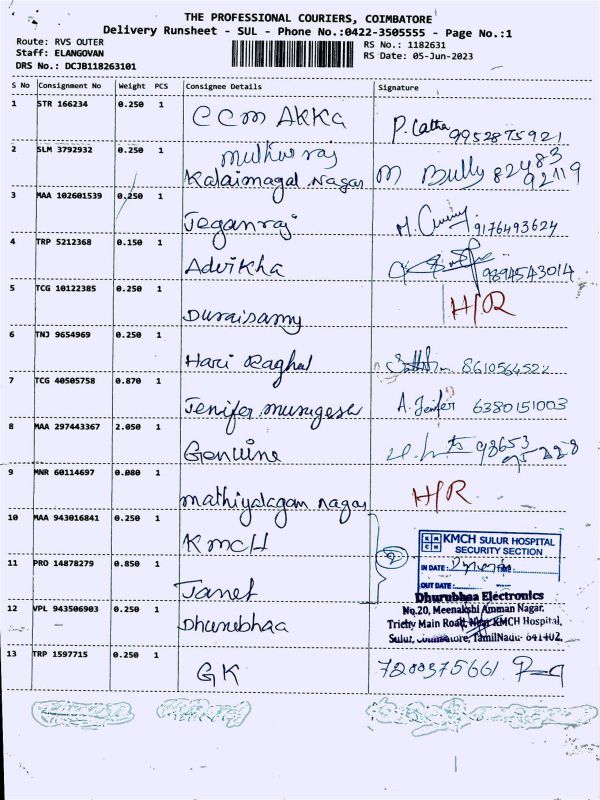 THE PROFESSIONAL COURIERS, COIMBATORE
Delivery Runsheet - SUL - Phone No.:0422-3505555 - Page No.:1
Route: RVS OUTER
Staff: ELANGOVAN
DRS No.: DCJB118263101
RS No.: 1182631
RS Date: 05-Jun-2023
S No Consignment No Weight PCS Consignee Details Signature
1 STR 166234 0.250 1 CCM AKKA P. Latha 9952875921
2 SLM 3792932 0.250 1 muthu raj
Kalaimagal Nagar M Bully 82483
92119
3 MAA 102601539 0.250 1 Jeganraj 9176493624
4 TRP 5212368 0.150 1 Advikha 9894543014
5 TCG 10122385 0.250 1 Duraisamy H/R
6 TNJ 9654969 0.250 1 Hari Raghul 8610564522
7 TCG 40505758 0.870 1 Jenifer murugesh A. Jenifer 6380151003
8 MAA 297443367 2.050 1 Genuine 98653
75228
9 MNR 60114697 0.080 1 mathiyalagam nagar H/R
10 MAA 943016841 0.250 1 KMCH
2
KMCH SULUR HOSPITAL
SECURITY SECTION
IN DATE: TIME
OUT DATE:
11 PRO 14878279 0.850 1 Janet
12 VPL 943506903 0.250 1 Dhurubhaa
Dhurubhaa Electronics
No.20, Meenakshi Amman Nagar,
Trichy Main Road, Near KMCH Hospital,
Sulur, Coimbatore, TamilNadu- 641402.
13 TRP 1597715 0.250 1 GK 7200375661